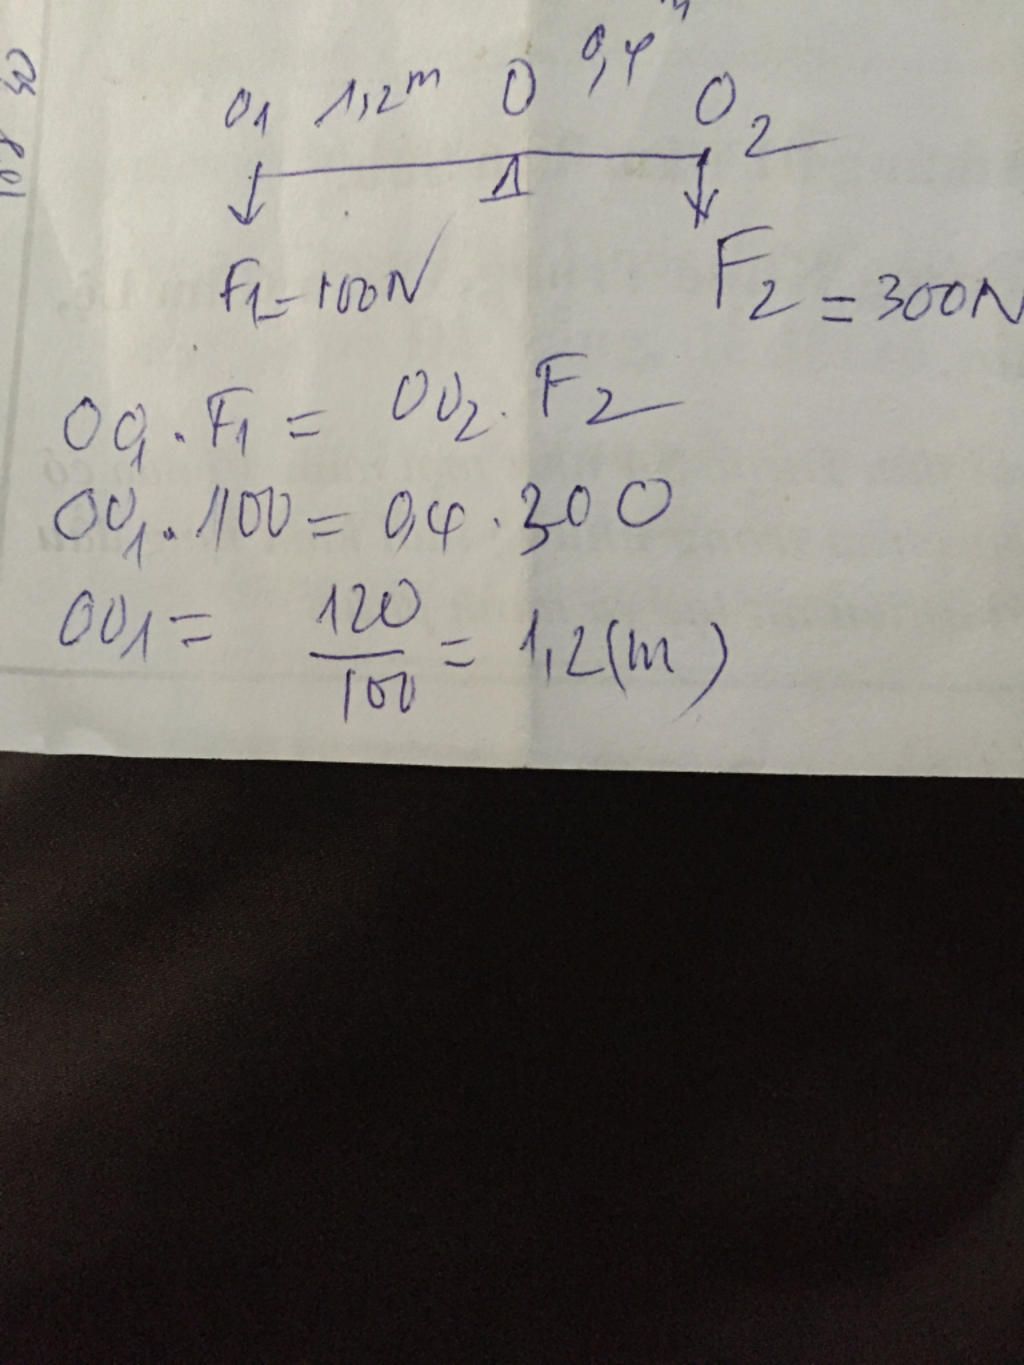 O1 1,2m O 0,4m O2
F1=100N F2=300N
OO1.F1= OO2.F2
OO1.100=0,4.300
OO1= 120/100 = 1,2(m)